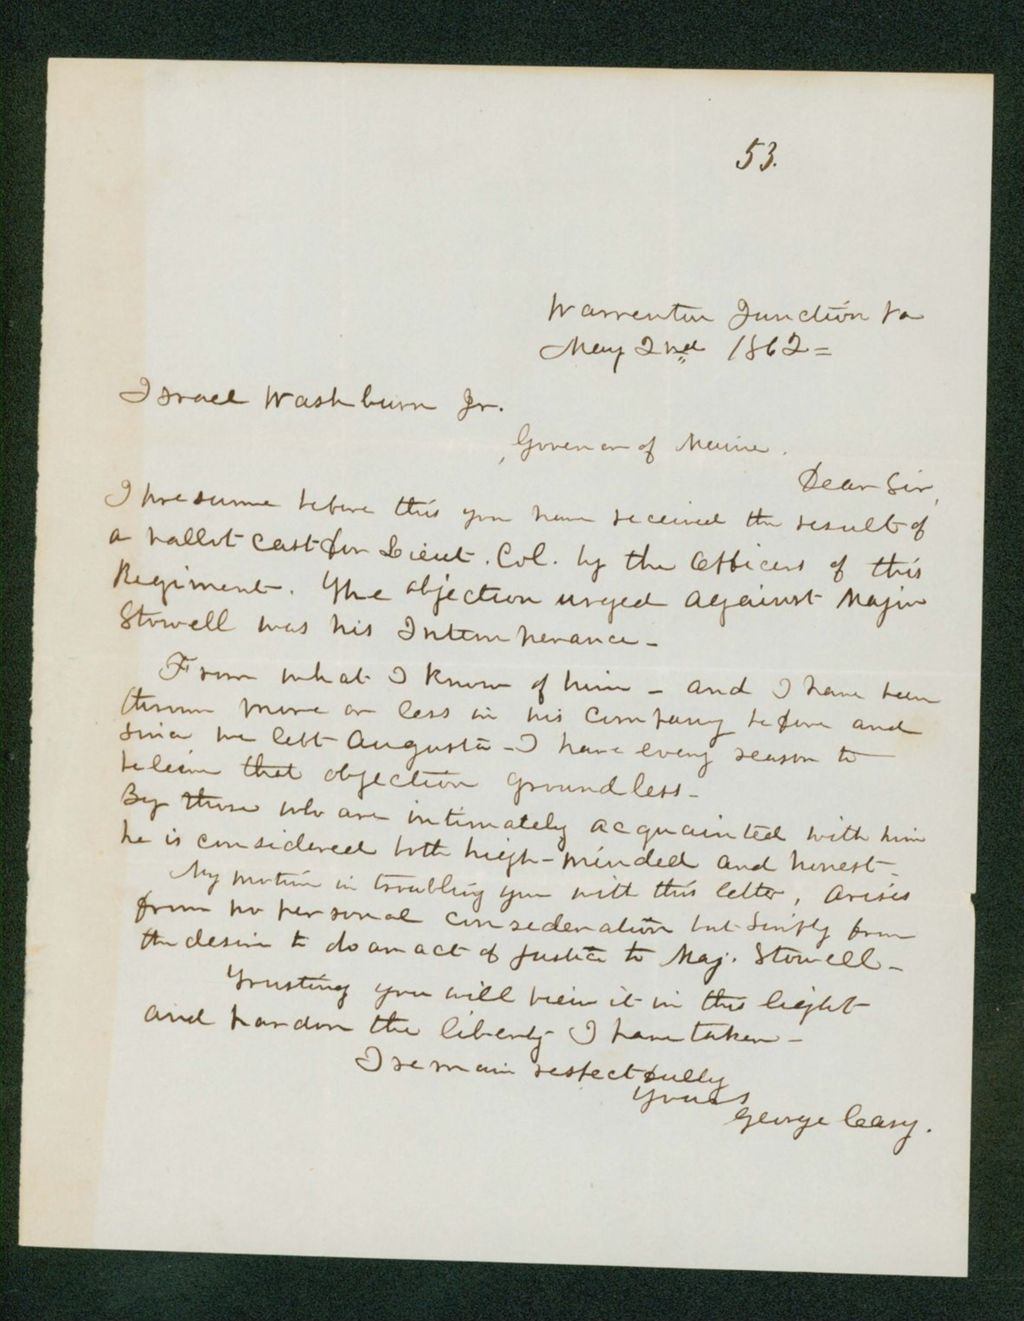 53.
Warrenton Junction Va
May 2nd 1862=
Israel Washburn Jr.
Governor of Maine.
Dear Sir,
I presume before this you have received the result of
a ballot cast for Lieut. Col. by the Officers of this
Regiment. The objection urged against Major
Stowell was his Intemperance –
From what I know of him – and I have been
thrown more or less in his company before and
since we left Augusta – I have every reason to
believe that objection groundless –
By those who are intimately acquainted with him
he is considered both high-minded and honest –
My motive in troubling you with this letter, arises
from no personal consideration but simply from
the desire to do an act of justice to Maj. Stowell –
Trusting you will view it in this light
and pardon the liberty I have taken –
I remain respectfully
Yours
George Cary.